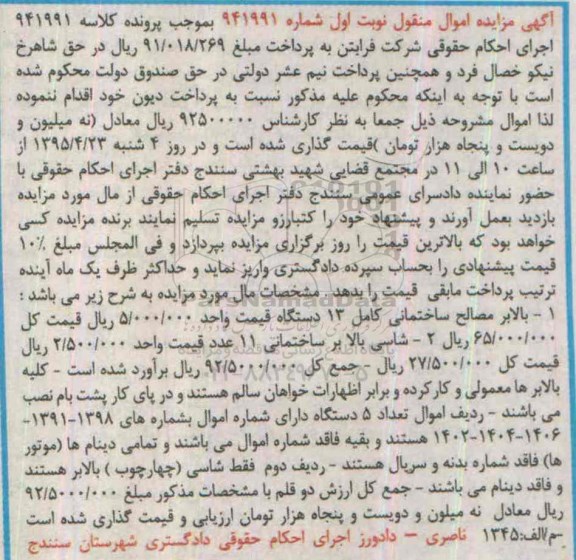 آگهی مزایده اموال منقول نوبت اول شماره ۹۴۱۹۹۱ بموجب پرونده کلاسه ۹۴۱۹۹۱
اجرای احکام حقوقی شرکت فرابتن به پرداخت مبلغ ۹۱/۰۱۸/۲۶۹ ریال در حق شاهرخ
نیکو خصال فرد و همچنین پرداخت نیم عشر دولتی در حق صندوق دولت محکوم شده
است با توجه به اینکه محکوم علیه مذکور نسبت به پرداخت دیون خود اقدام ننموده
لذا اموال مشروحه ذیل جمعا به نظر کارشناس ۹۲۵۰۰۰۰۰ ریال معادل (نه میلیون و
دویست و پنجاه هزار تومان )قیمت گذاری شده است و در روز ۴ شنبه ۱۳۹۵/۴/۲۳ از
ساعت ۱۰ الی ۱۱ در مجتمع قضایی شهید بهشتی سنندج دفتر اجرای احکام حقوقی با
حضور نماینده دادسرای عمومی سنندج دفتر اجرای احکام حقوقی از مال مورد مزایده
بازدید بعمل آورند و پیشنهاد خود را کتبارزو مزایده تسلیم نمایند برنده مزایده کسی
خواهد بود که بالاترین قیمت را روز برگزاری مزایده بپردازد و فی المجلس مبلغ ۱۰٪
قیمت پیشنهادی را بحساب سپرده دادگستری واریز نماید و حداکثر ظرف یک ماه آینده
ترتیب پرداخت مابقی قیمت را بدهد. مشخصات مال مورد مزایده به شرح زیر می باشد :
۱ - بالابر مصالح ساختمانی کامل ۱۳ دستگاه قیمت واحد ۵/۰۰۰/۰۰۰ ریال قیمت کل
۶۵/۰۰۰/۰۰۰ ریال ۲ - شاسی بالا بر ساختمانی ۱۱ عدد قیمت واحد ۲/۵۰۰/۰۰۰ ریال
قیمت کل ۲۷/۵۰۰/۰۰۰ ریال - جمع کل ۹۲/۵۰۰/۰۰۰ ریال برآورد شده است - کلیه
بالابر ها معمولی و کارکرده و برابر اظهارات خواهان سالم هستند و در پای کار پشت بام نصب
می باشند - ردیف اموال تعداد ۵ دستگاه دارای شماره اموال بشماره های ۱۳۹۸-۱۳۹۱-
۱۴۰۶-۱۴۰۴-۱۴۰۲ هستند و بقیه فاقد شماره اموال می باشند و تمامی دینام ها (موتور
ها) فاقد شماره بدنه و سریال هستند - ردیف دوم فقط شاسی (چهارچوب ) بالابر هستند
و فاقد دینام می باشند - جمع کل ارزش دو قلم با مشخصات مذکور مبلغ ۹۲/۵۰۰۰/۰۰۰
ریال معادل نه میلون و دویست و پنجاه هزار تومان ارزیابی و قیمت گذاری شده است
م/الف:۱۳۴۵ ناصری – دادورز اجرای احکام حقوقی دادگستری شهرستان سنندج